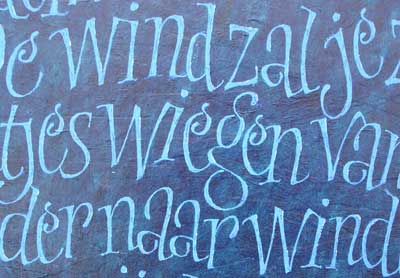 De wind zal je z
tjes wiegen van
der naar wind